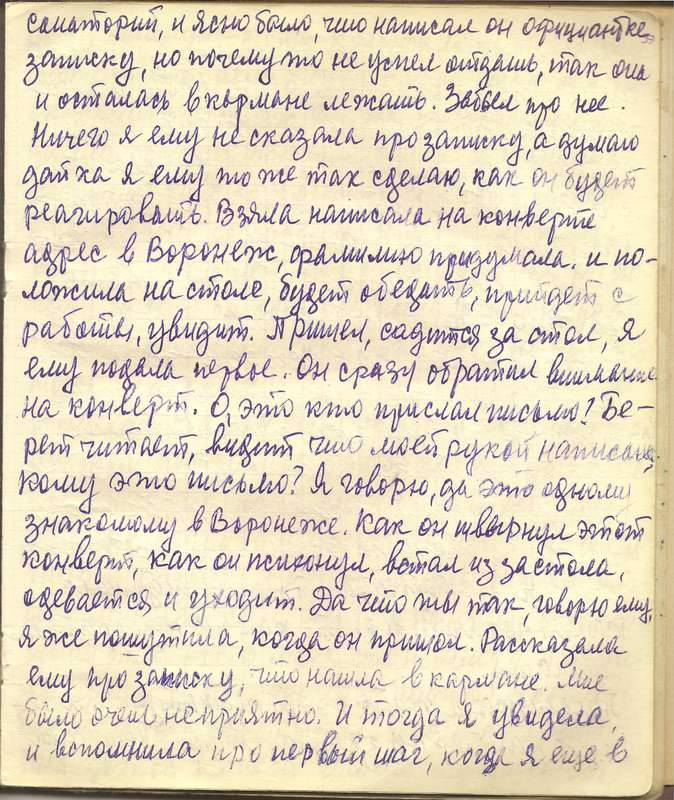 санаторий, и ясно было, что написал он официантке
записку, но почему то не успел отдать, так она
и осталась в кармане лежать. Забыл про нее.
Ничего я ему не сказала про записку, а думаю
дай ка я ему то же так сделаю, как он будет
реагировать. Взяла написала на конверте
адрес в Воронеж, фамилию придумала. и по-
ложила на столе, будет обедать, прийдет с
работы, увидит. Пришел, садится за стол, я
ему подала первое. Он сразу обратил внимание
на конверт. О, это кто прислал письмо? Бе-
рет читает, видит что моей рукой написано,
кому это письмо? Я говорю, да это одному
знакомому в Воронеже. Как он швырнул этот
конверт, как он психонул, встал из за стола,
одевается и уходит. Да что ты так, говорю ему,
я же пошутила, когда он пришол. Рассказала
ему про записку, что нашла в кармане. Мне
было очен неприятно. И тогда я увидела,
и вспомнила про первый шаг, когда я еще в